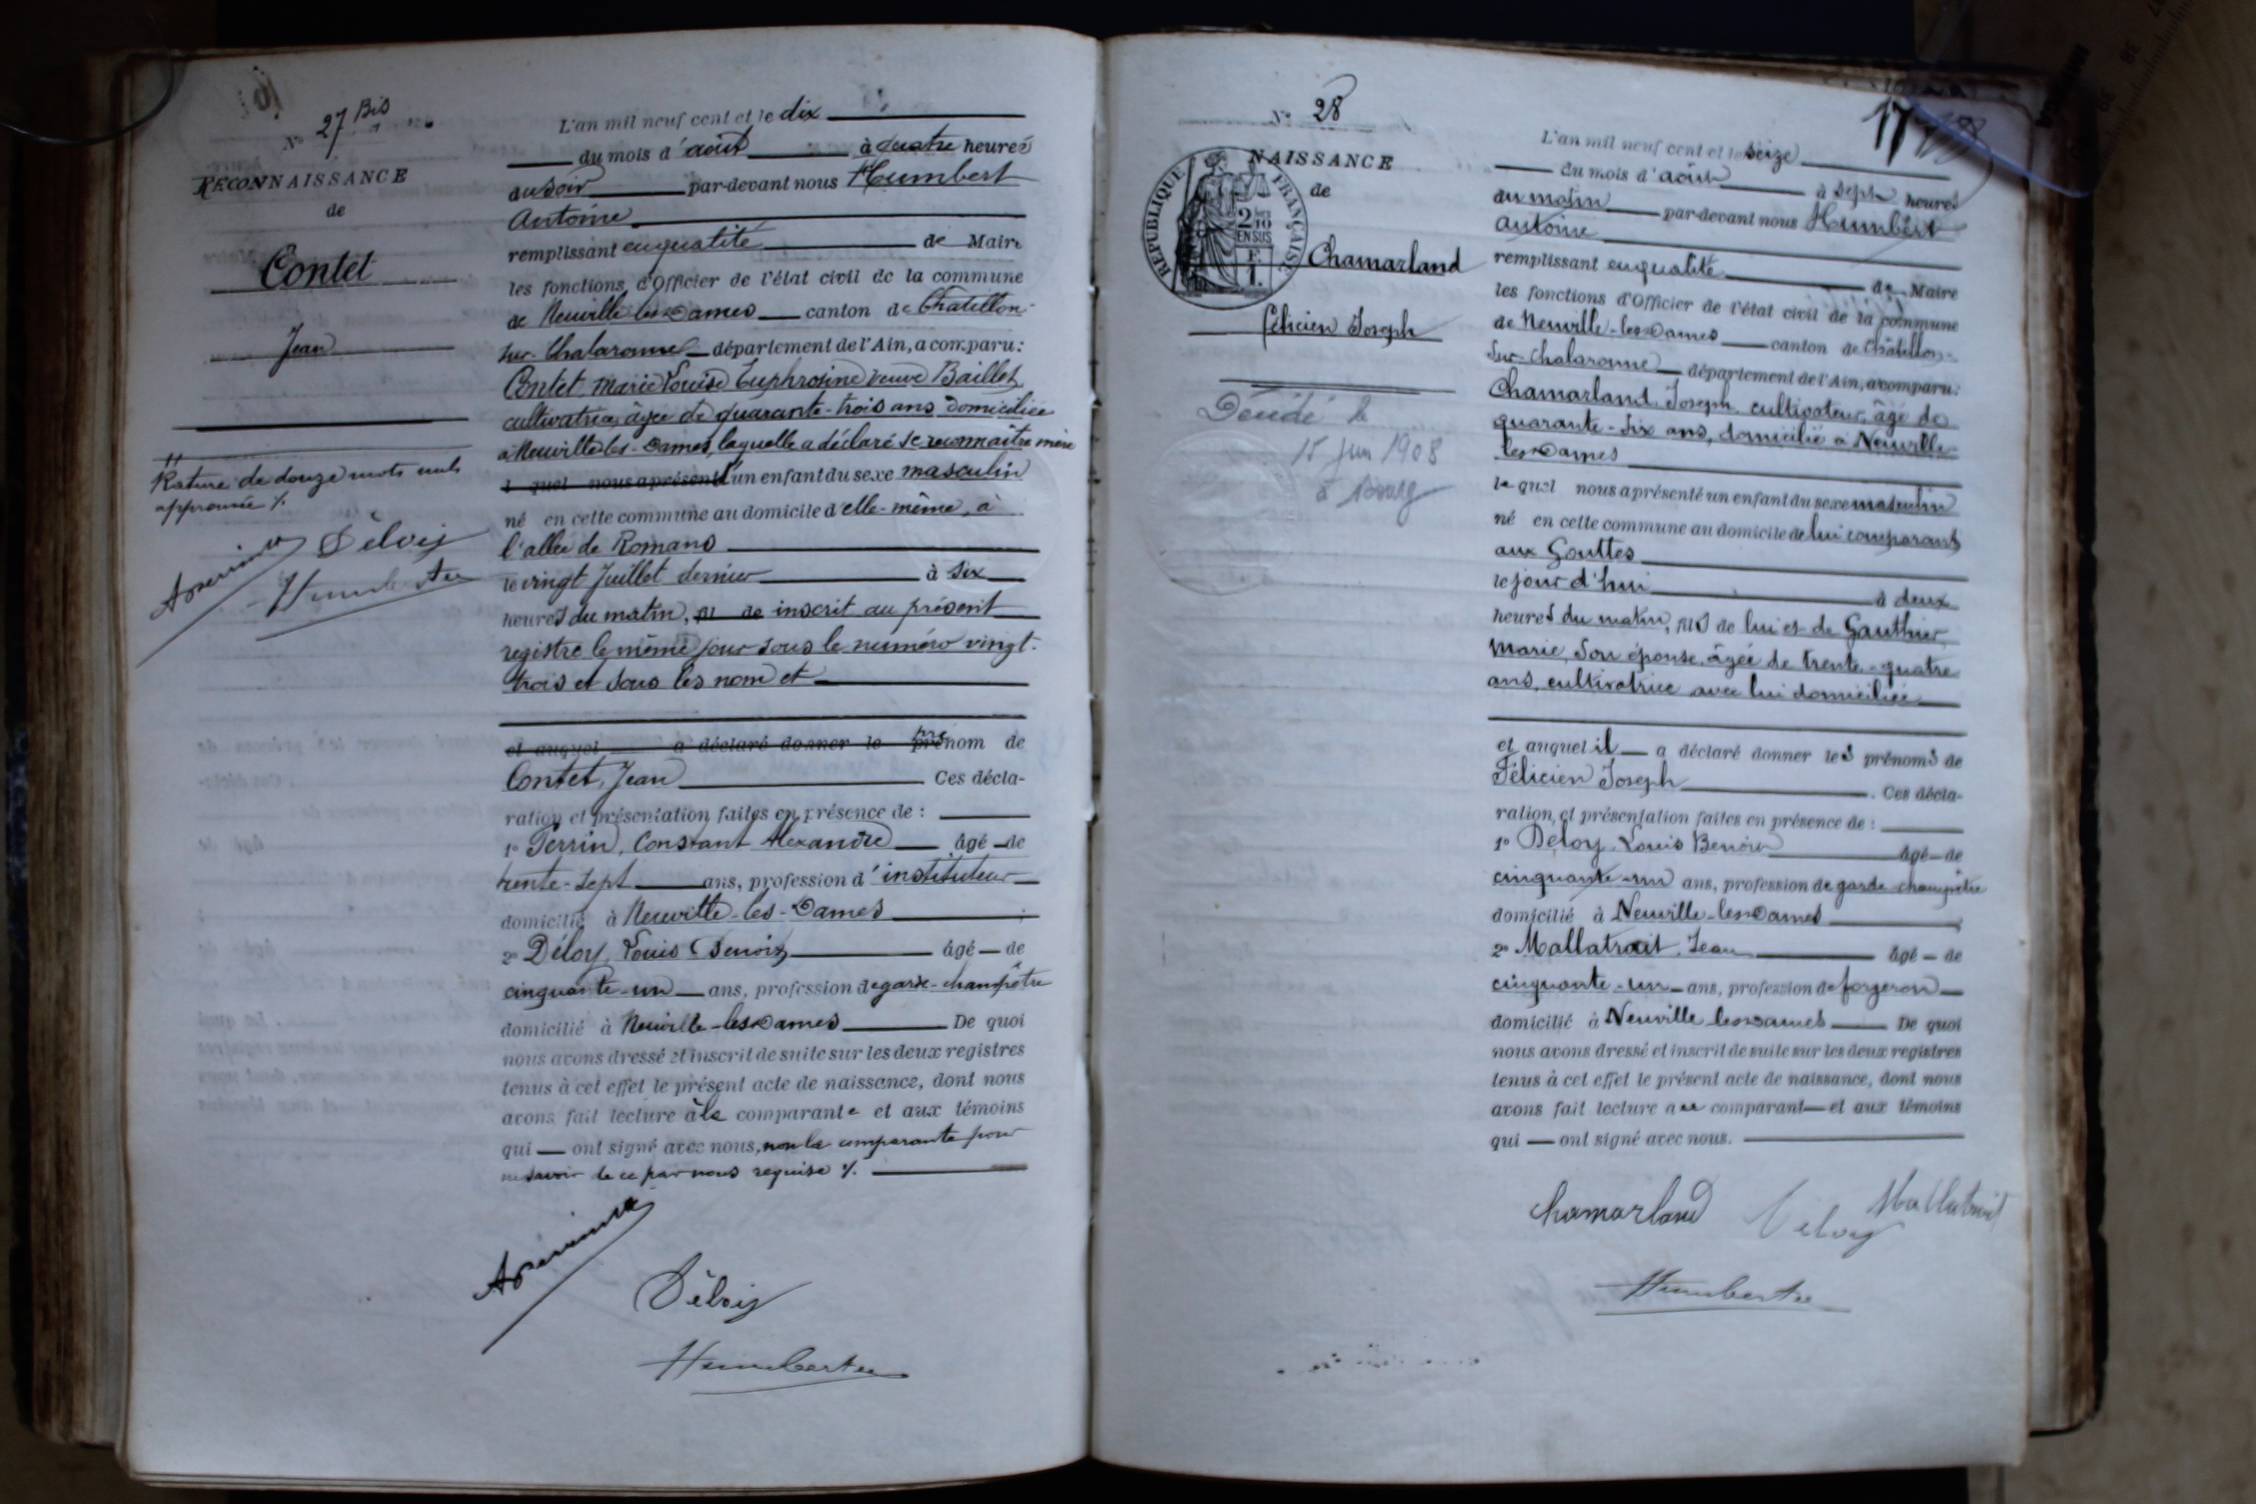 N° 27 Bis
RECONNAISSANCE
de
Contet
Jean
Rature de douze mots nuls
approuvée %.
Déloy
Humbert
L'an mil neuf cent et le dix
du mois d'août à quatre heures
du soir par-devant nous Humbert
Antoine
remplissant en qualité de Maire
les fonctions d'Officier de l'état civil de la commune
de Neuville les Dames canton de Chatillon-
sur-Chalaronne département de l'Ain, a comparu:
Contet, Marie Louise Euphrosine veuve Baillet,
cultivatrice, âgée de quarante-trois ans domiciliée
à Neuville-les-Dames, laquelle a déclaré se reconnaître mère
lequel nous a présenté d'un enfant du sexe masculin
né en cette commune au domicile d'elle-même, à
l'allée de Romans
le vingt Juillet dernier à six
heures du matin, fil de inscrit au présent
registre le même jour sous le numéro vingt-
trois et sous les nom et
et auquel a déclaré donner le prénom de
Contet, Jean Ces décla-
ration et présentation faites en présence de :
1° Perrin, Constant Alexandre âgé de
trente-sept ans, profession d'instituteur
domicilié à Neuville-les-Dames ;
2° Déloy, Louis Benoix âgé de
cinquante-un ans, profession de garde-champêtre
domicilié à Neuville-les-Dames De quoi
nous avons dressé et inscrit de suite sur les deux registres
tenus à cet effet le présent acte de naissance, dont nous
avons fait lecture à la comparante et aux témoins
qui ont signé avec nous, non la comparante pour
ne savoir de ce par nous requise %.
Déloy
Humbert
17
N° 28
NAISSANCE
de
RÉPUBLIQUE FRANÇAISE
2/10 EN SUS
Chamarland
Félicien Joseph
Décédé le
15 Juin 1908
à Bourg
L'an mil neuf cent et le seize
du mois d'août à sept heures
du matin par-devant nous Humbert
Antoine
remplissant en qualité de Maire
les fonctions d'Officier de l'état civil de la commune
de Neuville-les-Dames canton de Châtillon-
sur-Chalaronne département de l'Ain, a comparu:
Chamarland Joseph, cultivateur, âgé de
quarante-six ans, domicilié à Neuville
les-Dames
lequel nous a présenté un enfant du sexe masculin
né en cette commune au domicile de lui comparant
aux Gouttes
le jour d'hui à deux
heures du matin, fils de lui et de Gauthier
Marie, son épouse, âgée de trente-quatre
ans, cultivatrice avec lui domiciliée
et auquel il a déclaré donner les prénoms de
Félicien Joseph . Ces décla-
ration et présentation faites en présence de :
1° Déloy, Louis Benoix âgé de
cinquante-un ans, profession de garde-champêtre
domicilié à Neuville-les-Dames ;
2° Mallatrait, Jean âgé de
cinquante-un ans, profession de forgeron
domicilié à Neuville les Dames De quoi
nous avons dressé et inscrit de suite sur les deux registres
tenus à cet effet le présent acte de naissance, dont nous
avons fait lecture au comparant et aux témoins
qui ont signé avec nous.
Chamarland Déloy Mallatrait
Humbert